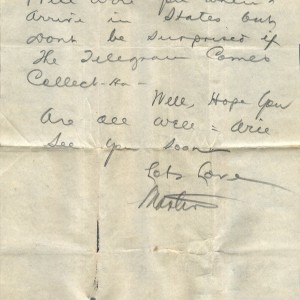 Will wire you when I
arrive in States but
dont be surprised if
the Telegram Comes
Collect - Ha -
Well, Hope you
Are all well = Will
See you Soon
Lots Love